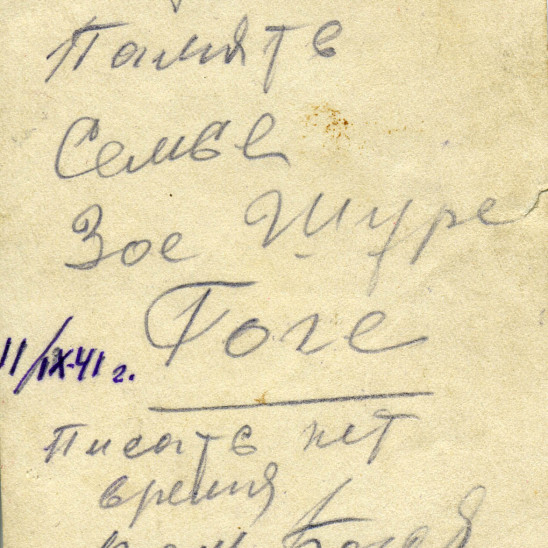 Память
Семье
Зое Шуре
Гоге
11/IX-41 г.
Писать нет
время